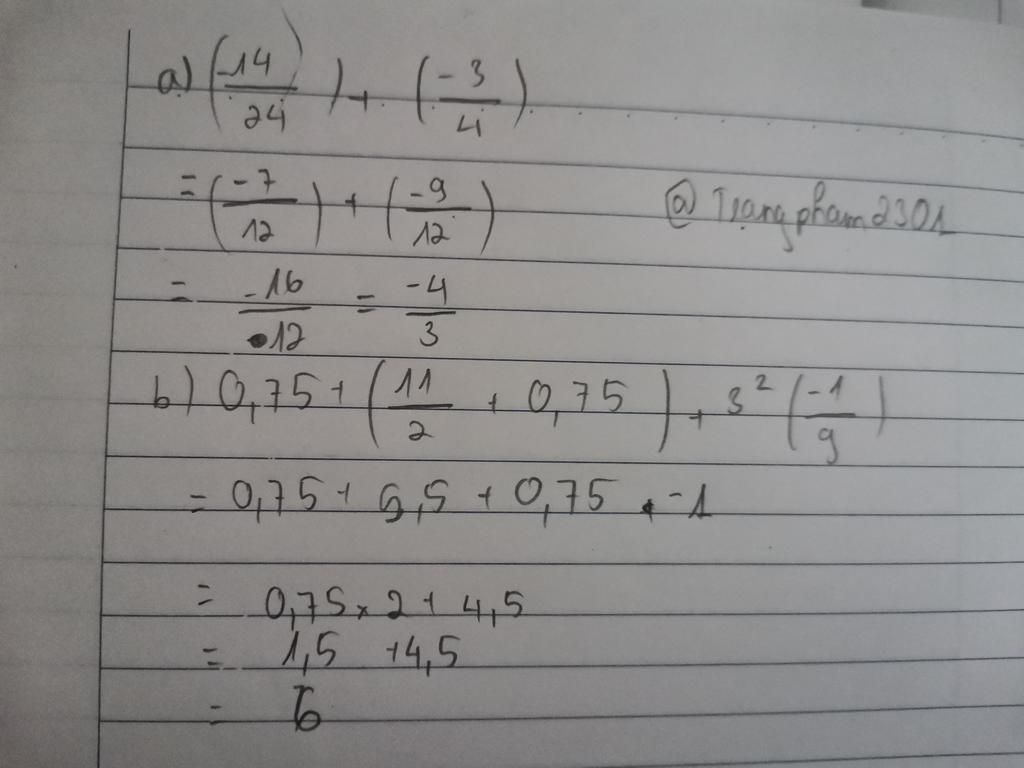 a) (-14/24) + (-3/4)
= (-7/12) + (-9/12) @Trangpham2301
= -16/12 = -4/3
b) 0,75 + (11/2 + 0,75) + 3² (-1/9)
= 0,75 + 5,5 + 0,75 . -1
= 0,75 x 2 + 4,5
= 1,5 + 4,5
= 6